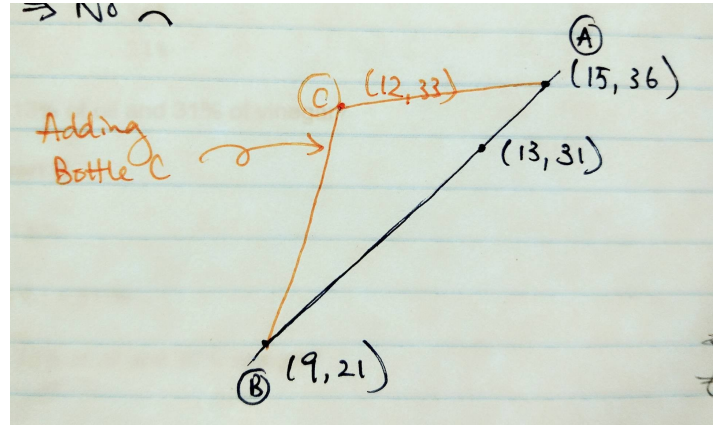 ⇒ No
A
C (12, 33)
(15, 36)
Adding
Bottle C
(13, 31)
B (9, 21)